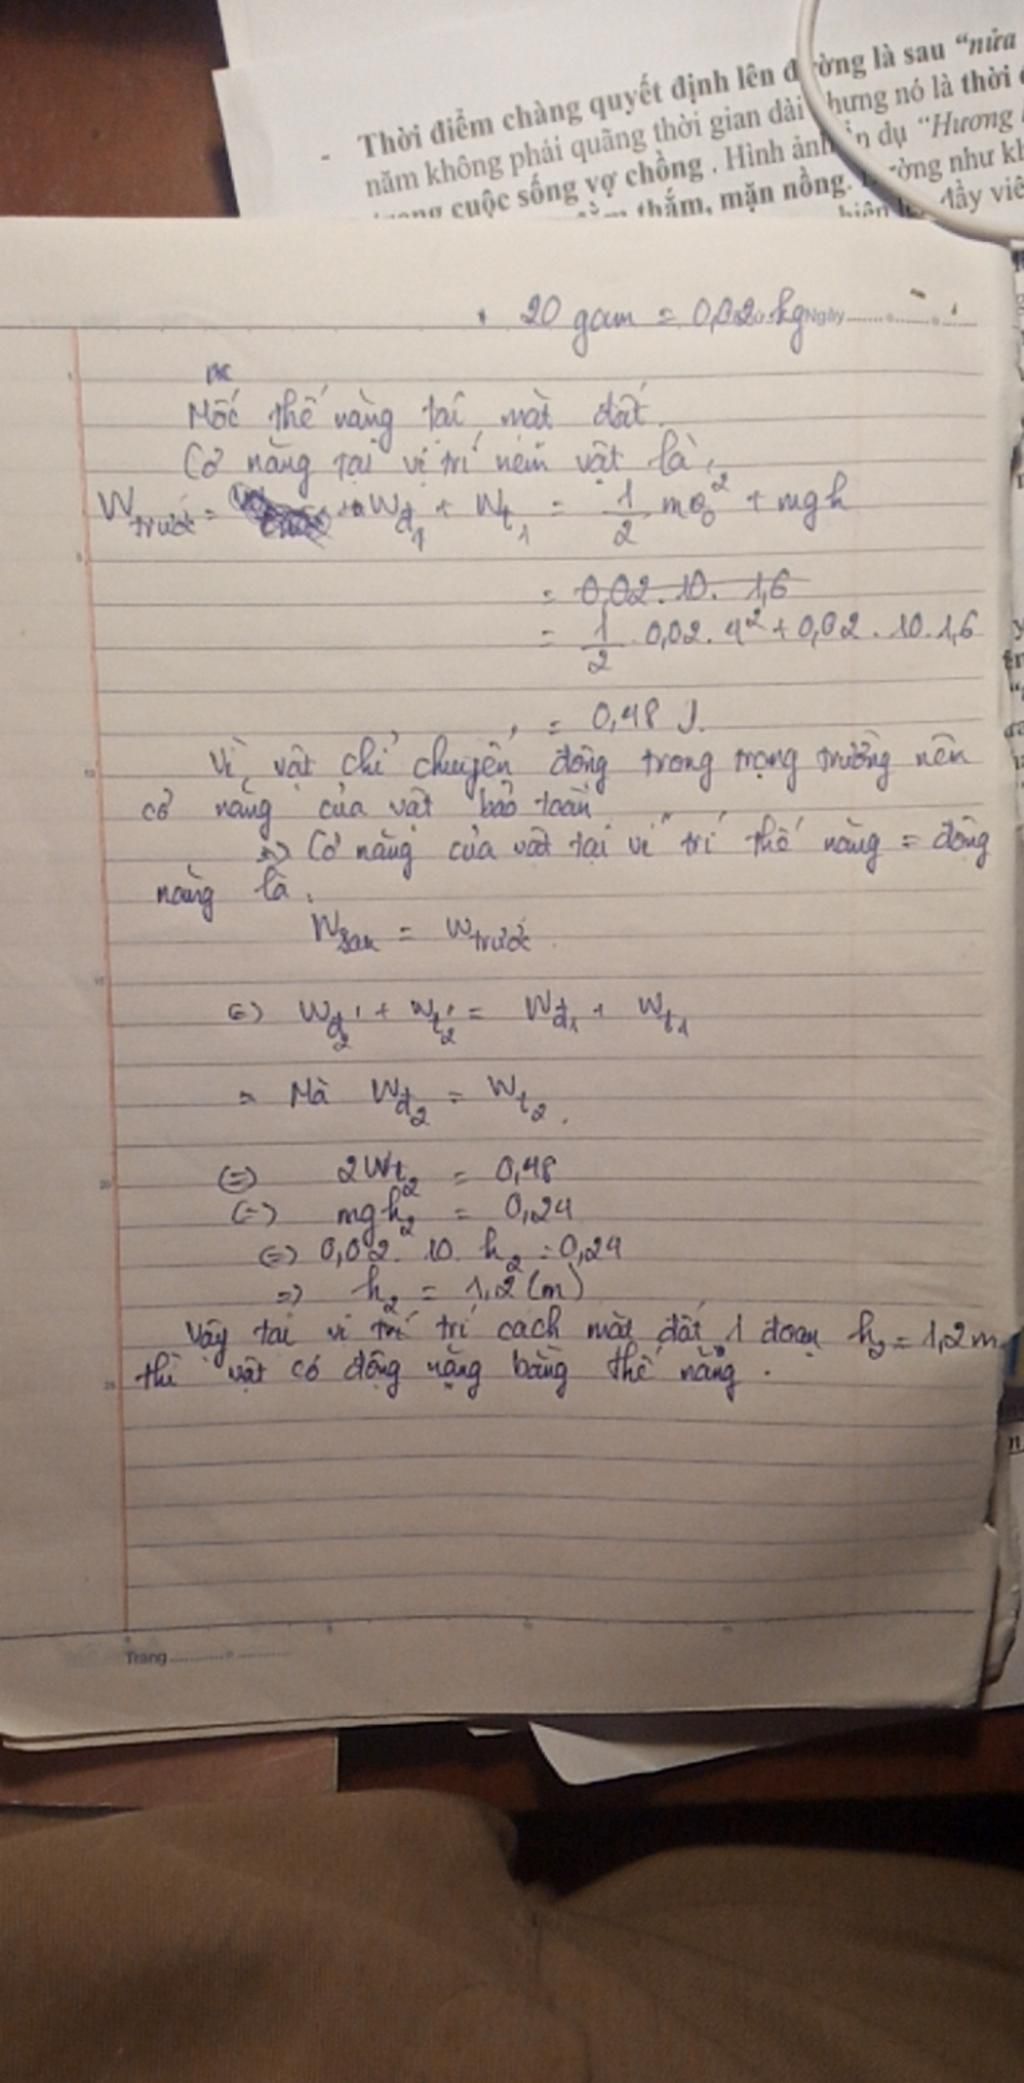 - Thời điểm chàng quyết định lên đường là sau “nửa
năm không phải quãng thời gian dài nhưng nó là thời
trong cuộc sống vợ chồng . Hình ảnh ẩn dụ “Hương
thắm, mặn nồng. như
đầy viê
20 gam = 0,02 kg Ngày
Mốc thế năng tại mặt đất.
Cơ năng tại vị trí ném vật là,
W trước = Wđ1 + Wt1 = 1/2 mv0² + mgh
= 0,02. 10. 1,6
= 1/2 . 0,02. 4² + 0,02 . 10. 1,6
= 0,48 J.
Vì vật chỉ chuyển động trong trọng trường nên
cơ năng của vật bảo toàn
=> Cơ năng của vật tại vị trí thế năng = động
năng là.
W sau = W trước.
<=> Wđ2' + Wt2' = Wđ1 + Wt1
Mà Wđ2 = Wt2.
<=> 2Wt2 = 0,48
<=> mgh2 = 0,24
<=> 0,02. 10. h2 = 0,24
=> h2 = 1,2 (m)
Vậy tại vị trí trí cách mặt đất 1 đoạn h2 = 1,2 m
thì vật có động năng bằng thế năng.
5
10
15
20
25
Trang